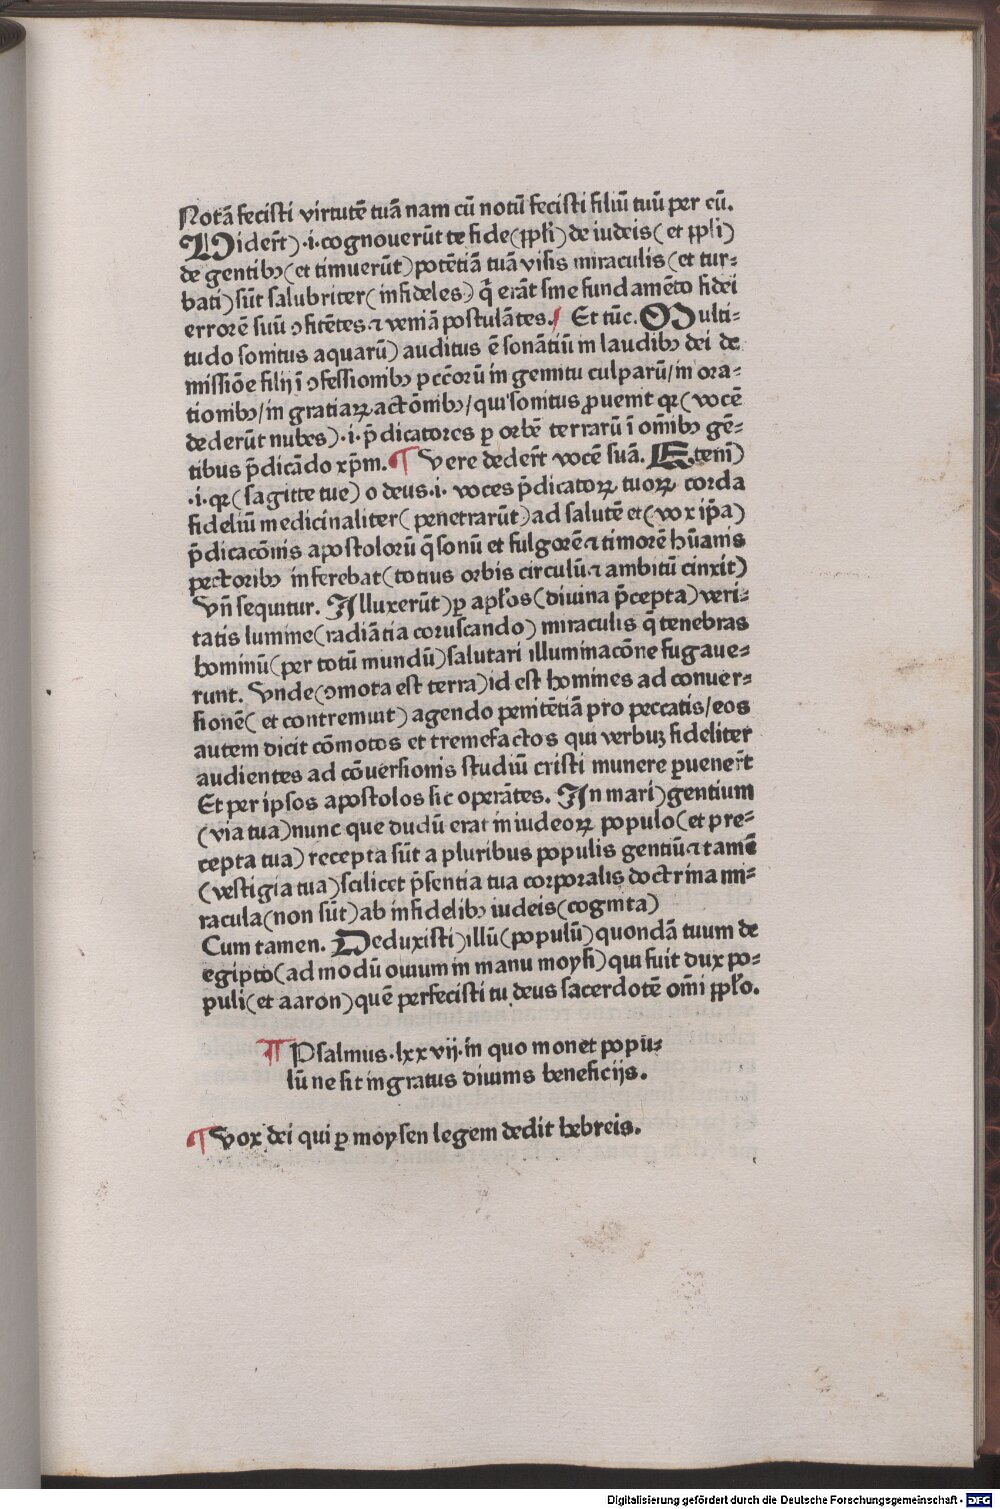 Notā fecisti virtutē tuā nam cū notū fecisti filiū tuū per eū.
Uider̄t)·i·cognouerūt te fide(ppl̄i) de iudeis(et ppl̄i)
de gentibꝫ(et timuerūt)potētiā tuā visis miraculis(et tur⸗
bati)sūt salubriter(infideles) q̄ erāt sine fundamēto fidei
errorē suū ꝯfitētes ⁊ veniā postulātes./ Et tūc. Multi⸗
tudo sonitus aquarū) auditus ē sonātiū in laudibꝫ dei de
missiōe filij ī ꝯfessionibꝫ pccōrū in gemitu culparū/in ora⸗
tionibꝫ/in gratiaꝝ actōnibꝫ/qui sonitus ꝓuenit qꝛ(vocē
dederūt nubes)·i·p̄dicatores ꝑ orbē terrarū ī om̄ibꝫ gē⸗
tibus p̄dicādo xp̄m. ¶ Vere deder̄t vocē suā. Eteni)
·i·qꝛ(sagitte tue) o deus·i· voces p̄dicatoꝝ tuoꝝ corda
fideliū medicinaliter(penetrarūt)ad salutē et(vox ip̄a)
p̄dicacōnis apostolorū q̄ sonū et fulgorē ⁊ timorē hūanis
pectoribꝫ inferebat(totius orbis circulū ⁊ ambitū cinxit)
Vn̄ sequitur. Illuxerūt)ꝑ apl̄os(diuina p̄cepta)veri⸗
tatis lumine(radiātia coruscando) miraculis q̄ tenebras
hominū(per totū mundū)salutari illuminacōne fugaue⸗
runt. Vnde(ꝯmota est terra)id est homines ad conuer⸗
sionē(et contremuit)agendo penitētiā pro peccatis/eos
autem dicit cōmotos et tremefactos qui verbuꝫ fideliter
audientes ad cōuersionis studiū cristi munere ꝑuener̄t
Et per ipsos apostolos sic operātes. In mari)gentium
(via tua)nunc que dudū erat in iudeoꝝ populo(et pre⸗
cepta tua) recepta sūt a pluribus populis gentiū ⁊ tamē
(vestigia tua)scilicet p̄sentia tua corporalis doctrina mi⸗
racula(non sūt)ab infidelibꝫ iudeis(cognita)
Cum tamen. Deduxisti)illū(populū)quondā tuum de
egipto(ad modū ouium in manu moysi)qui fuit dux po⸗
puli(et aaron)quē perfecisti tu deus sacerdotē om̄i ppl̄o.
¶ Psalmus·lxxvij·in quo monet popu⸗
lū ne sit ingratus diuinis beneficijs.
¶ Vox dei qui ꝑ moysen legem dedit hebreis.
Digitalisierung gefördert durch die Deutsche Forschungsgemeinschaft - DFG